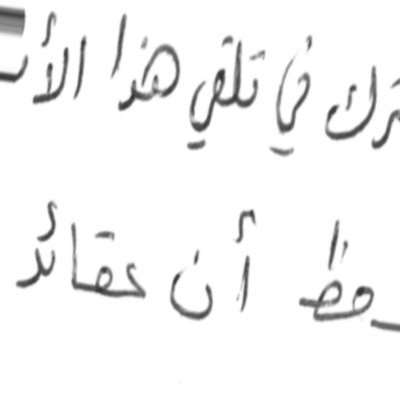 ترك في تلقي هذا الأ
حظ أن عقائد